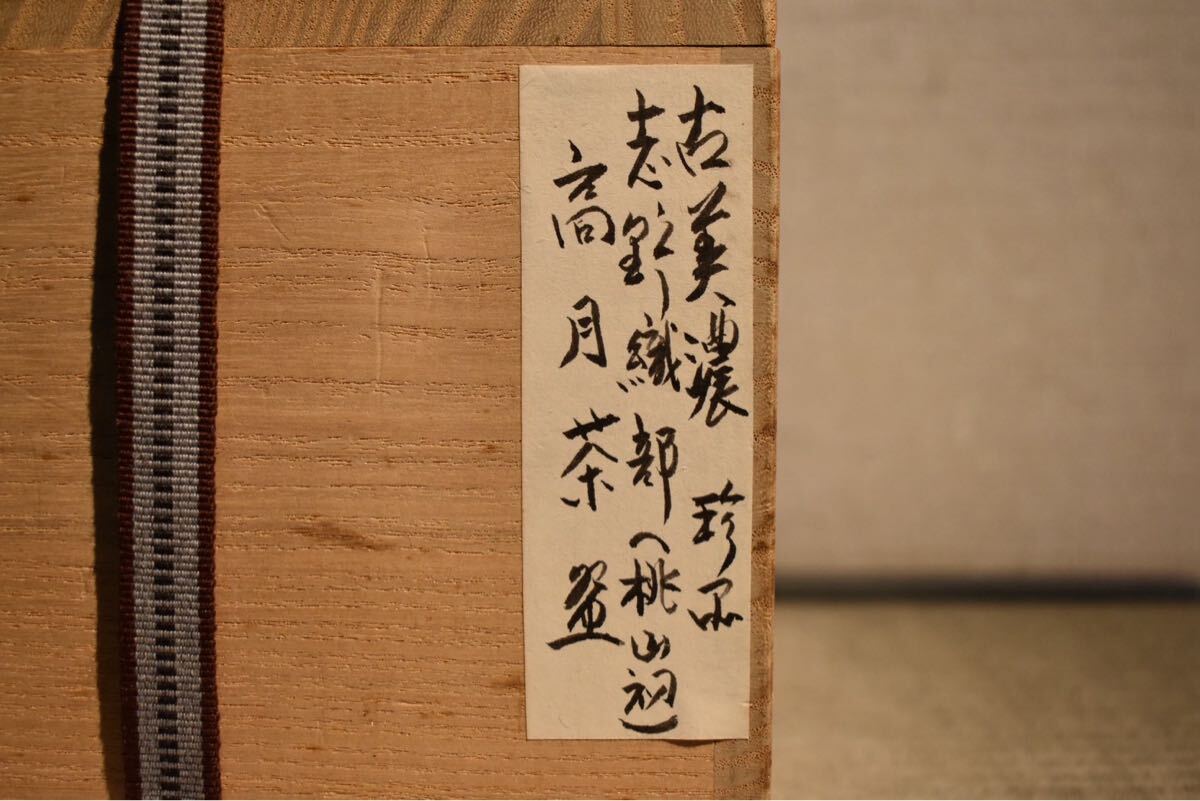 古美濃 珍品
志野織部(桃山初)
高月茶盌